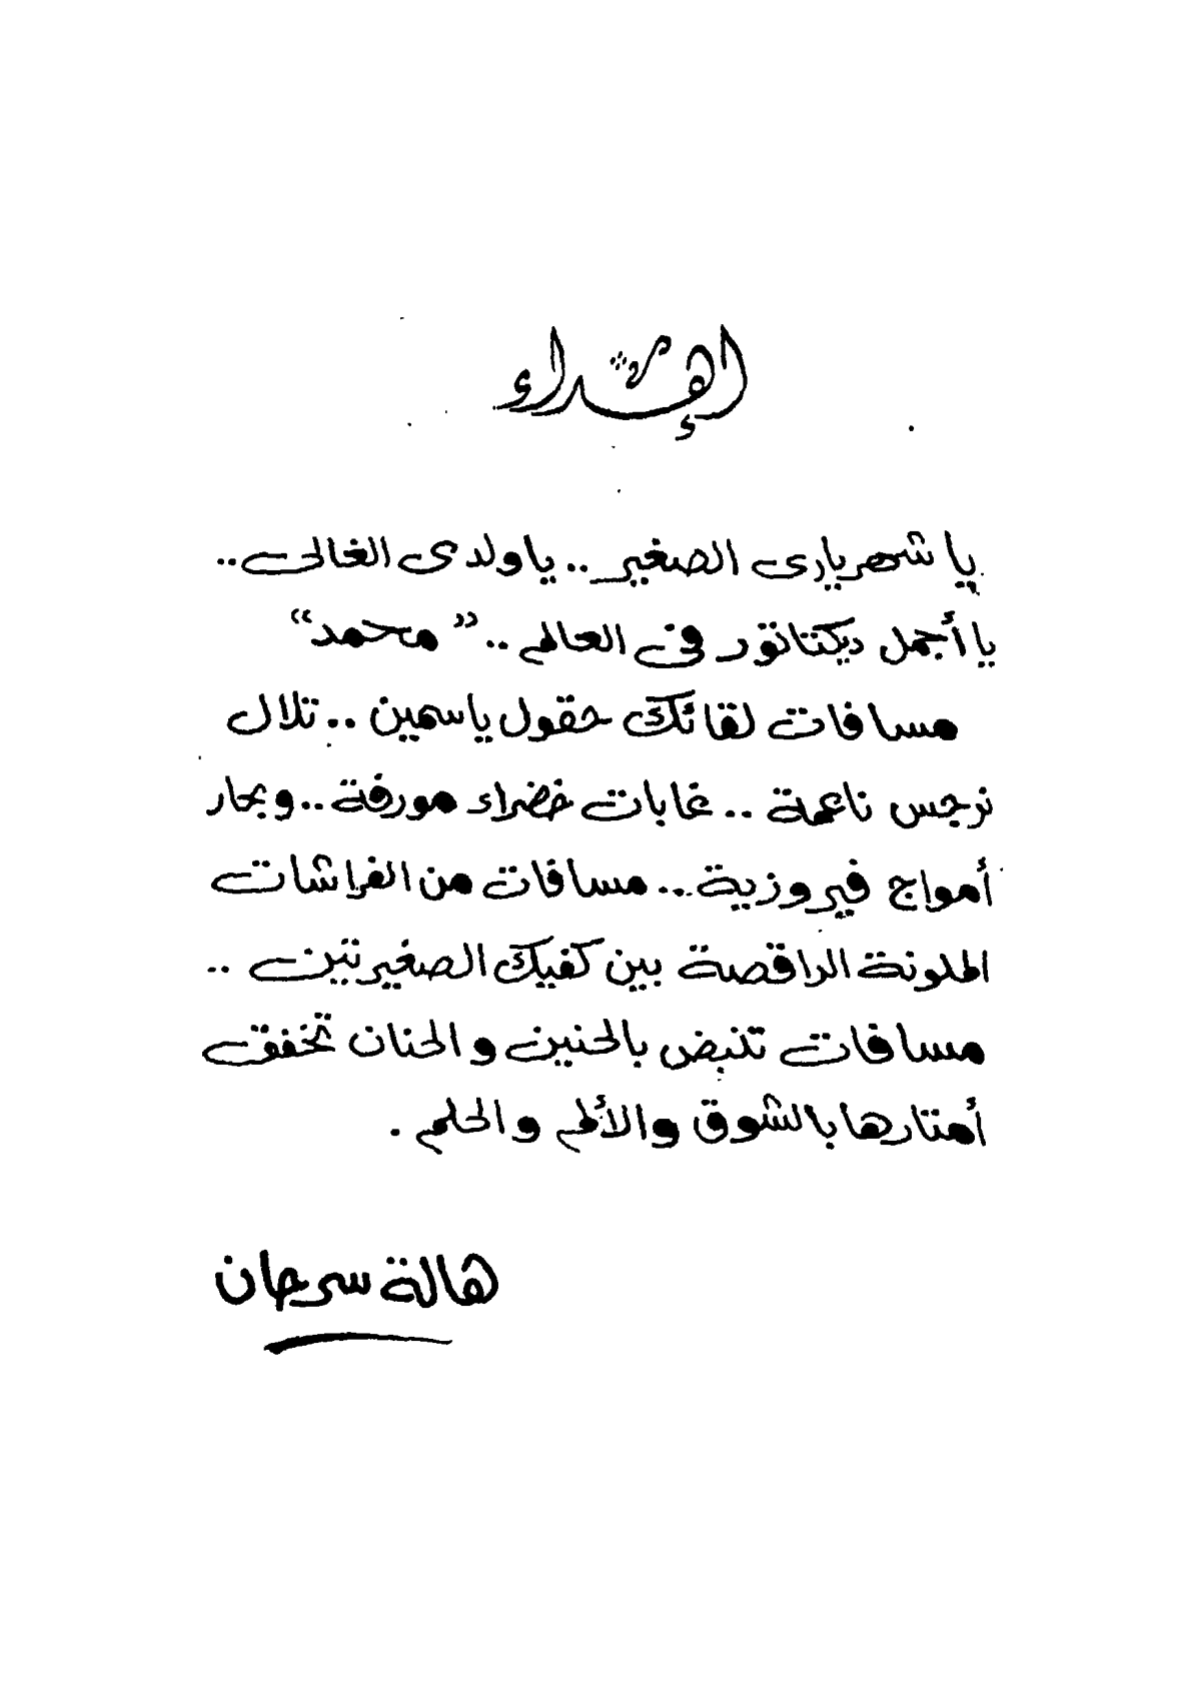 إهداء
يا شهريارى الصغير .. ياولدى الغالى ..
يا أجمل ديكتاتور فى العالم .. " محمد "
مسافات لقائك حقول ياسمين .. تلال
نرجس ناعمة .. غابات خضراء مورقة .. وبحار
أمواج فيروزية ... مسافات من الفراشات
الملونة الراقصة بين كفيك الصغيرتين ..
مسافات تنبض بالحنين والحنان تخفق
أمتارها بالشوق والألم والحلم .
هالة سرحان